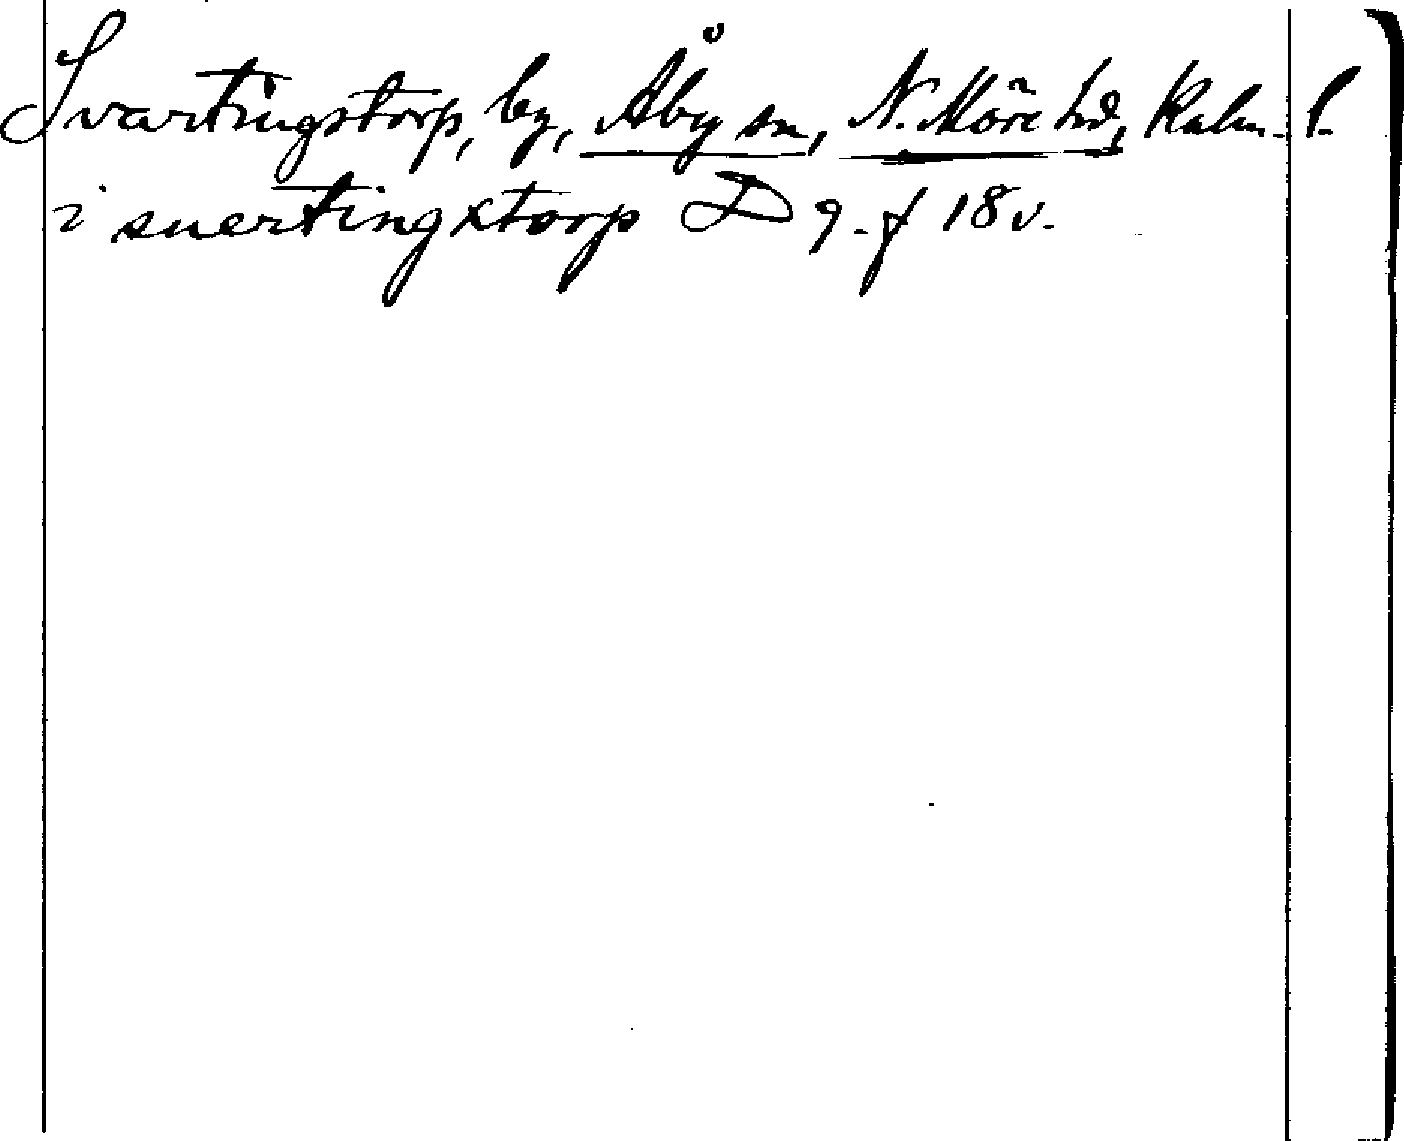 Svartingstorp, by, Åby sn, N. Möre hd, Kalm. l.
i suertingxtorp D 9. f 18 v.